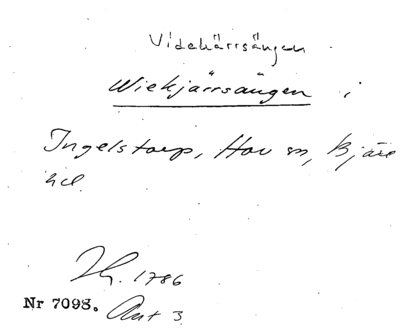 Videkärrsängen
Wiekjärrsängen i
Ingelstorp, Hov sn, Bjäre
hd.
1786
Nr 7098. Akt 3